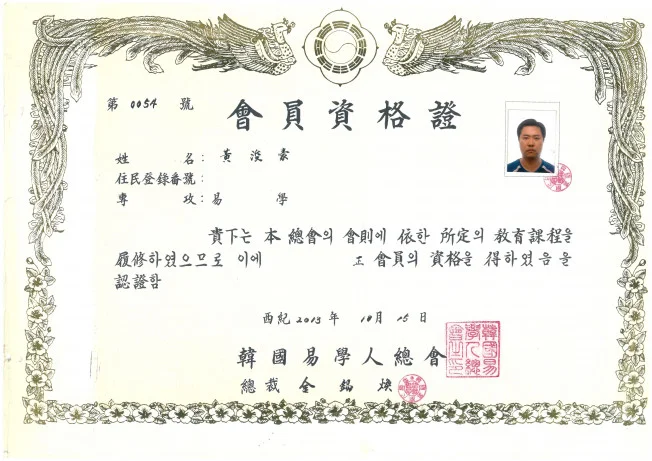 第 0054 號
會員資格證
姓 名: 黃浚豪
住民登錄番號:
專 攻: 易 學
貴下는 本 總會의 會則에 依한 所定의 敎育課程을
履修하였으므로 이에 正 會員의 資格을 得하였음을
認證함
西紀 2013 年 10月 15日
韓國易學人總會
總裁 金銘煥
韓國易
學人總
會之印